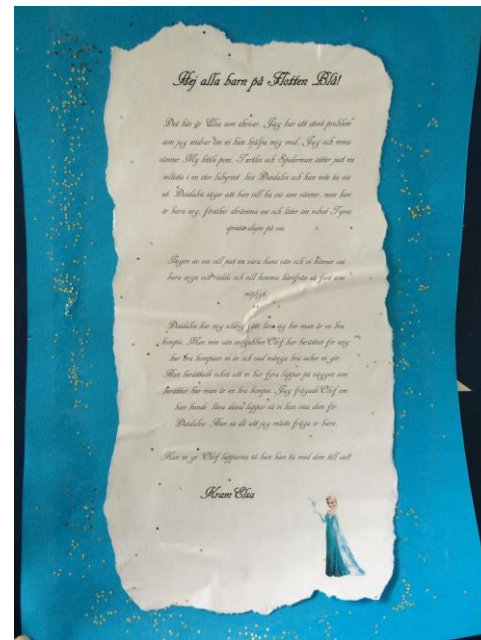 Hej alla barn på Flotten Blå!
Det här är Elsa som skriver. Jag har ett stort problem
som jag undrar om ni kan hjälpa mig med. Jag och mina
vänner My little poni, Turtles och Spiderman sitter just nu
inlåsta i en stor labyrint hos Daidalos och kan inte ta oss
ut. Daidalos säger att han vill ha oss som vänner, men han
är bara arg, försöker skrämma oss och låter sin robot Tyra
spruta slajm på oss.
Ingen av oss vill just nu vara hans vän och vi känner oss
bara arga och rädda och vill komma härifrån så fort som
möjligt.
Daidalos har nog aldrig fått lära sig hur man är en bra
kompis. Men min vän snögubben Olof har berättat för mig
hur bra kompisar ni är och vad många bra saker ni gör.
Han berättade också att ni har fyra lappar på väggen som
berättar hur man är en bra kompis. Jag frågade Olof om
han kunde låna dessa lappar så vi kan visa dem för
Daidalos. Han sa då att jag måste fråga er barn.
Kan ni ge Olof lapparna så han kan ta med dem till oss?
Kram Elsa